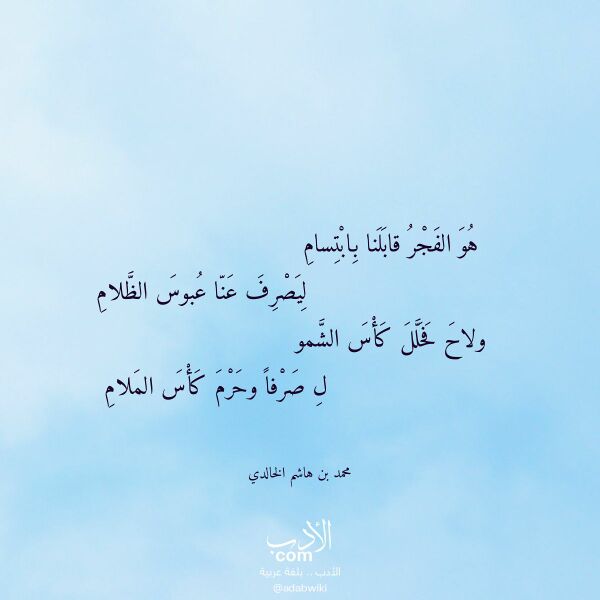 هُوَ الفَجْرُ قابَلَنا بِابْتِسامِ
لِيَصْرِفَ عَنّا عُبوسَ الظَّلامِ
ولاحَ فَحَلَّلَ كَأْسَ الشَّمو
لِ صَرْفاً وحَرْمَ كَأْسَ المَلامِ
محمد بن هاشم الخالدي
الأدب
com
الأدب .. بلغة عربية
@adabwiki